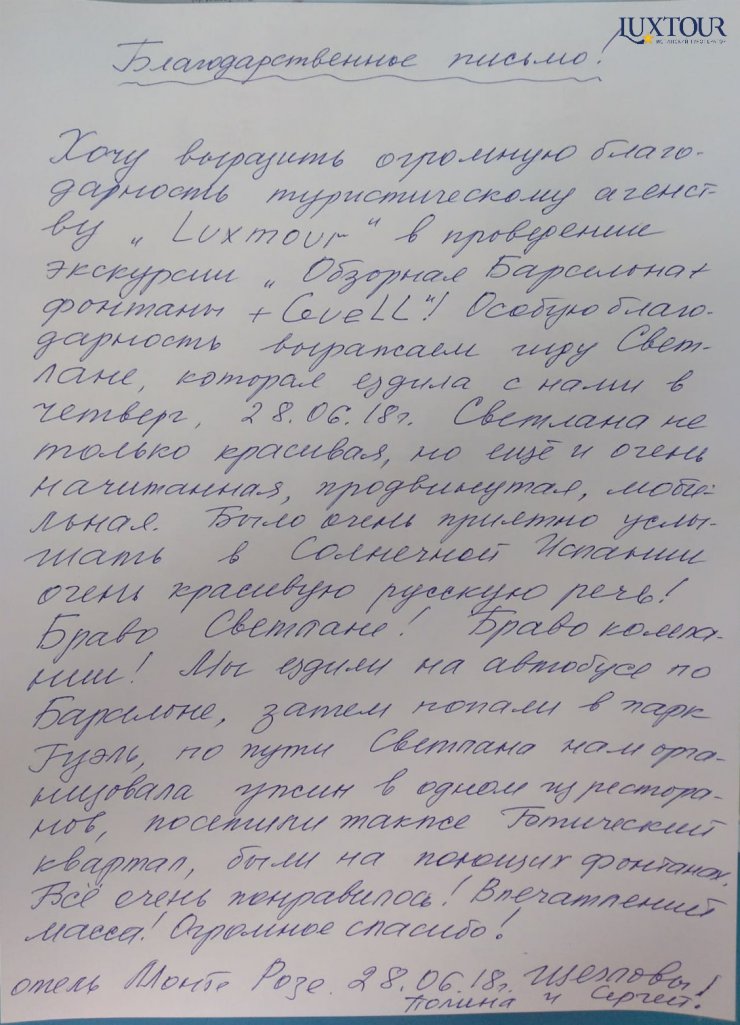 LUXTOUR
Благодарственное письмо!
Хочу выразить огромную благо-
дарность туристическому агенст-
ву „Luxtour“ в проведении
экскурсии „Обзорная Барселона+
фонтаны + GueLL“! Особую благо-
дарность выражаем гиду Свет-
лане, которая ездила с нами в
четверг, 28.06.18г. Светлана не
только красивая, но ещё и очень
начитанная, продвинутая, моби-
льная. Было очень приятно услы-
шать в Солнечной Испании
очень красивую русскую речь!
Браво Светлане! Браво компа-
нии! Мы ездили на автобусе по
Барселоне, затем попали в парк
Гуэль, по пути Светлана нам орга-
низовала ужин в одном из рестора-
нов, посетили также Готический
квартал, были на поющих фонтанах.
Всё очень понравилось! Впечатлений
масса! Огромное спасибо!
отель Монте Розе. 28.06.18г. Щегловы!
Полина и Сергей.